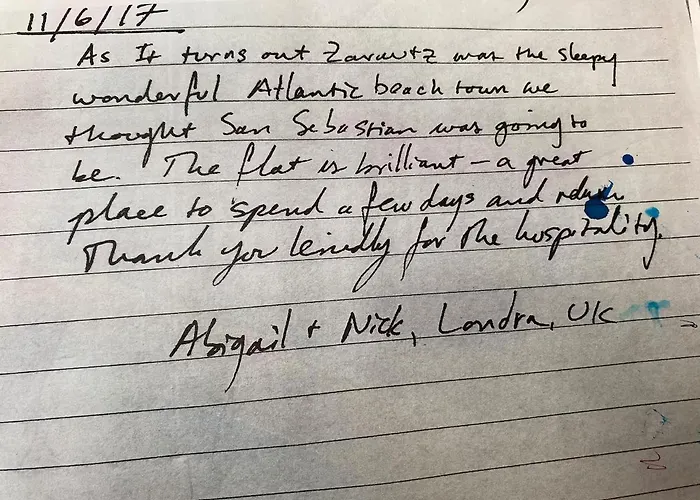 11/6/17
As It turns out Zarautz was the sleepy
wonderful Atlantic beach town we
thought San Sebastian was going to
be. The flat is brilliant – a great
place to spend a few days and relax
Thank you kindly for the hospitality.
Abigail + Nick, Londra, UK